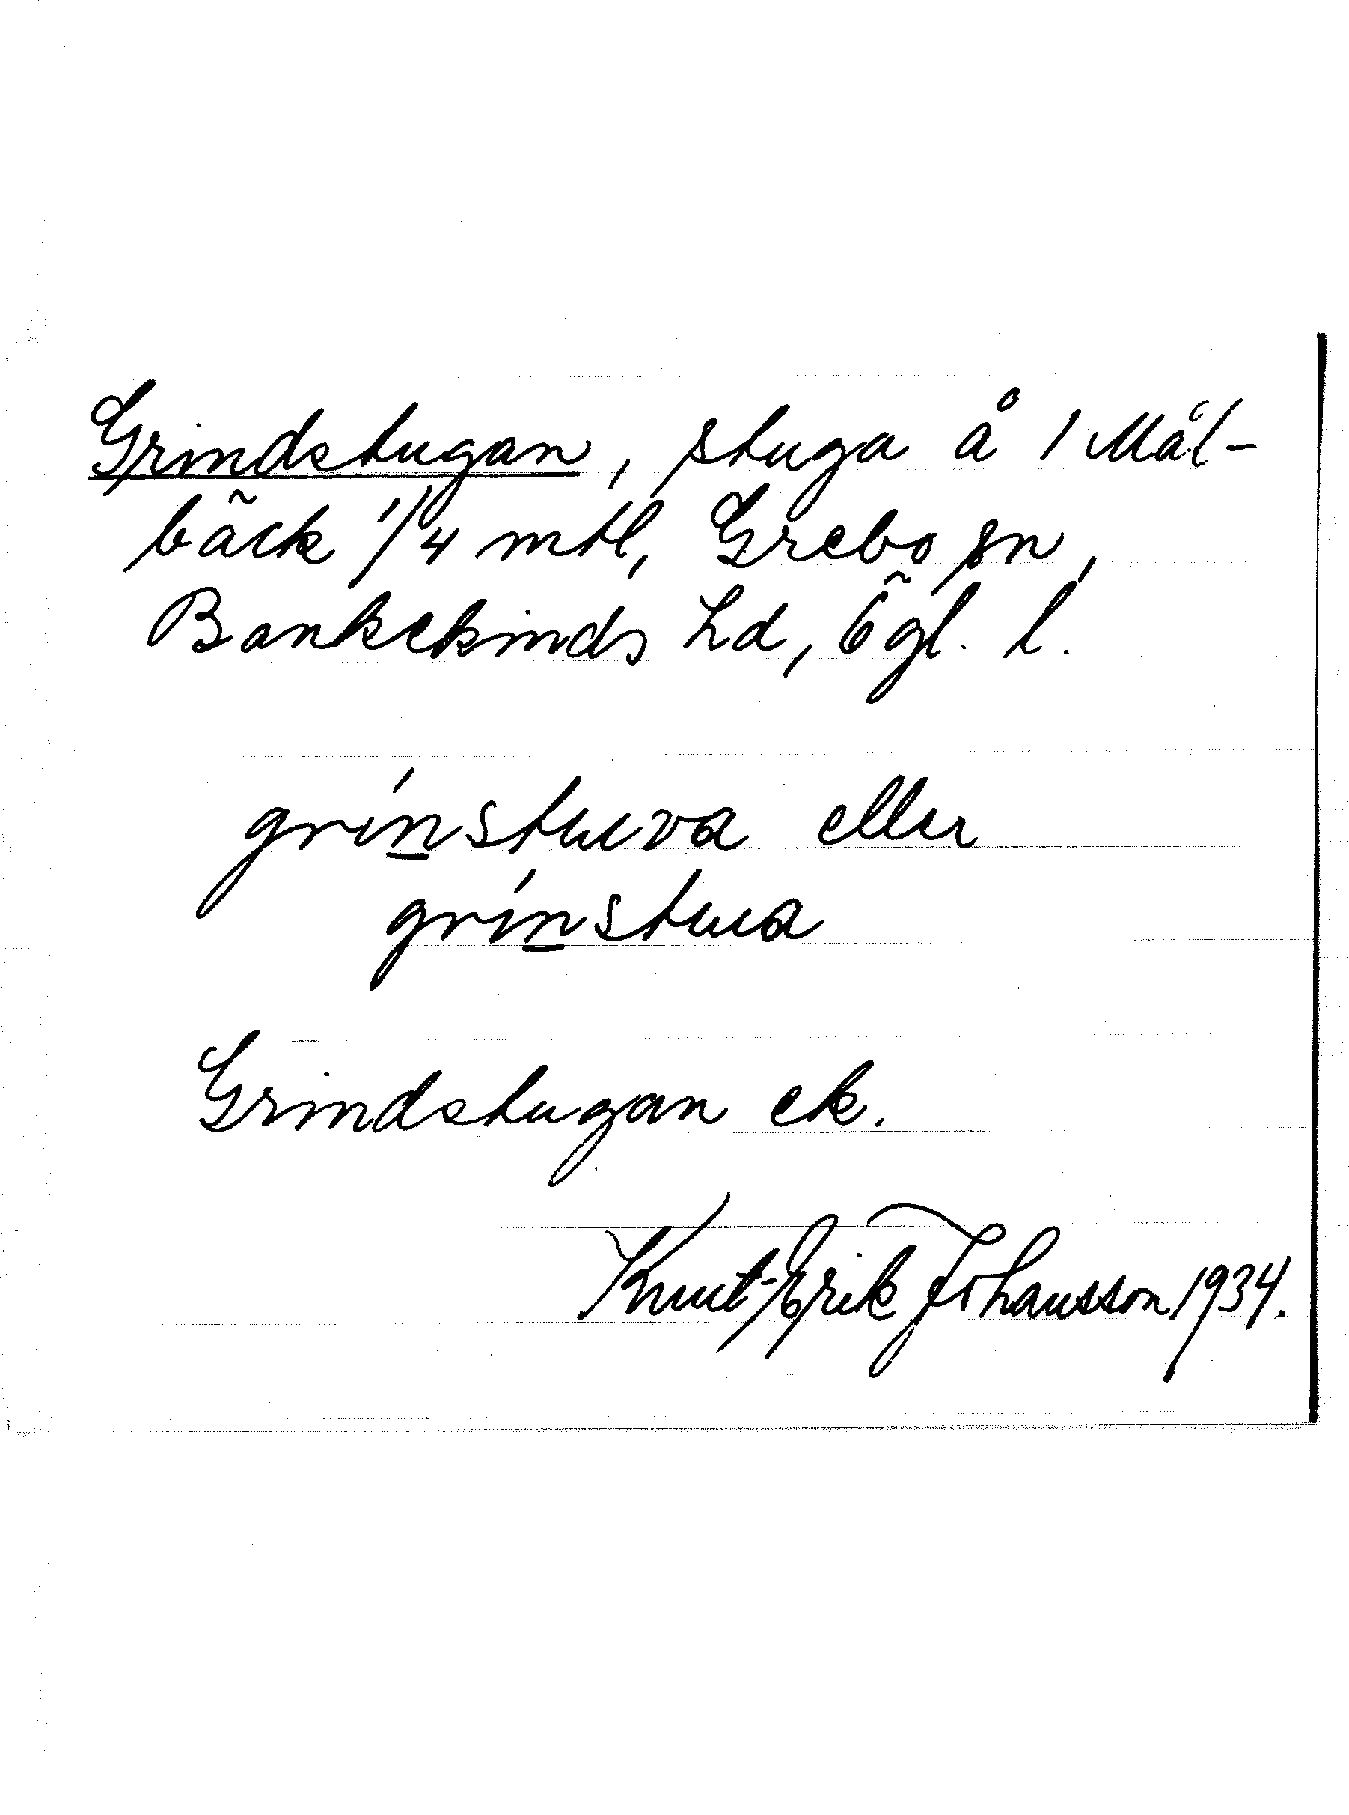 Grindstugan, stuga å 1 Mål-
bäck 1/4 mtl, Grebo sn,
Bankekinds hd, Ögl. l.
grínstuva eller
grínstua
Grindstugan ek.
Knut-Erik Johansson 1934.